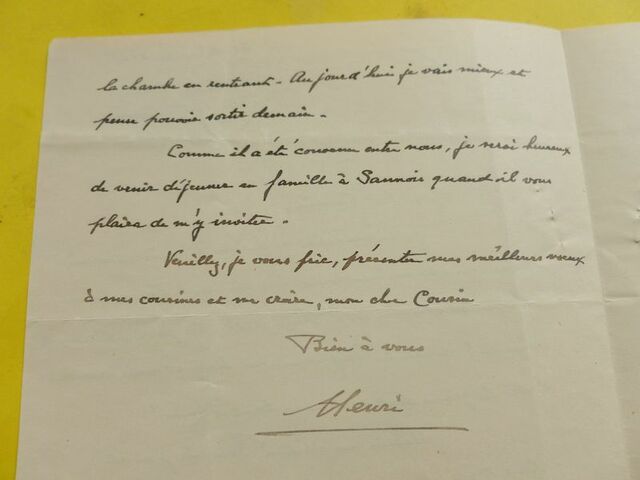 la chambre en rentrant - Aujourd'hui je vais mieux et
pense pouvoir sortir demain -
Comme il a été convenu entre nous, je serai heureux
de venir déjeuner en famille à Sannois quand il vous
plaira de m'y inviter -
Veuillez, je vous prie, présenter mes meilleurs voeux
à mes cousines et me croire, mon cher Cousin
Bien à vous
Henri